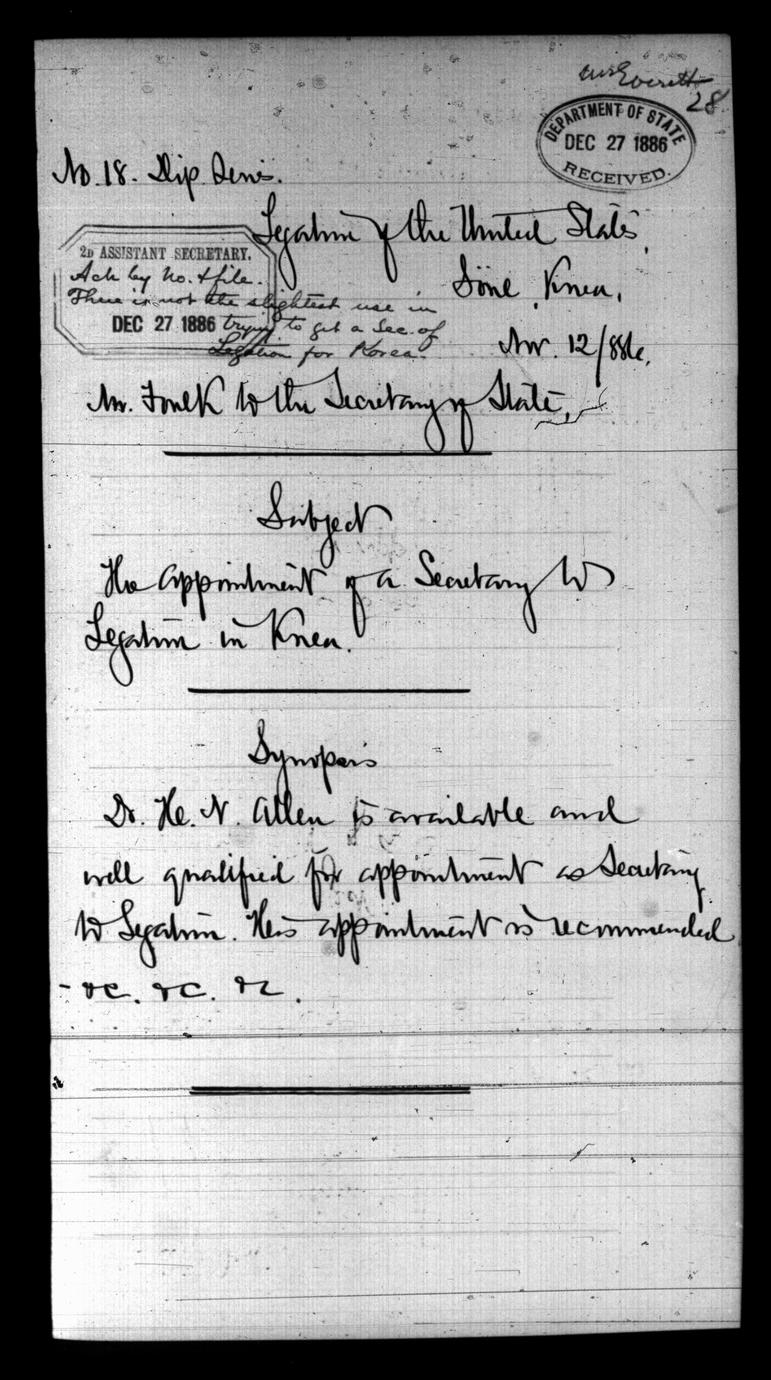 Mr Everett
28
DEPARTMENT OF STATE
DEC 27 1886
RECEIVED.
No. 18. Dip. Series.
Legation of the United States,
Söul, Korea,
2D ASSISTANT SECRETARY.
Ack by No. & file.
There is not the slightest use in
DEC 27 1886 trying to get a Sec. of
Legation for Korea.
Nov. 12/886.
Mr. Foulk to the Secretary of State,
Subject
The appointment of a Secretary to
Legation in Korea.
Synopsis
Dr. H. N. Allen is available and
well qualified for appointment as Secretary
to Legation. His appointment is recommended
- &c. &c. &c.